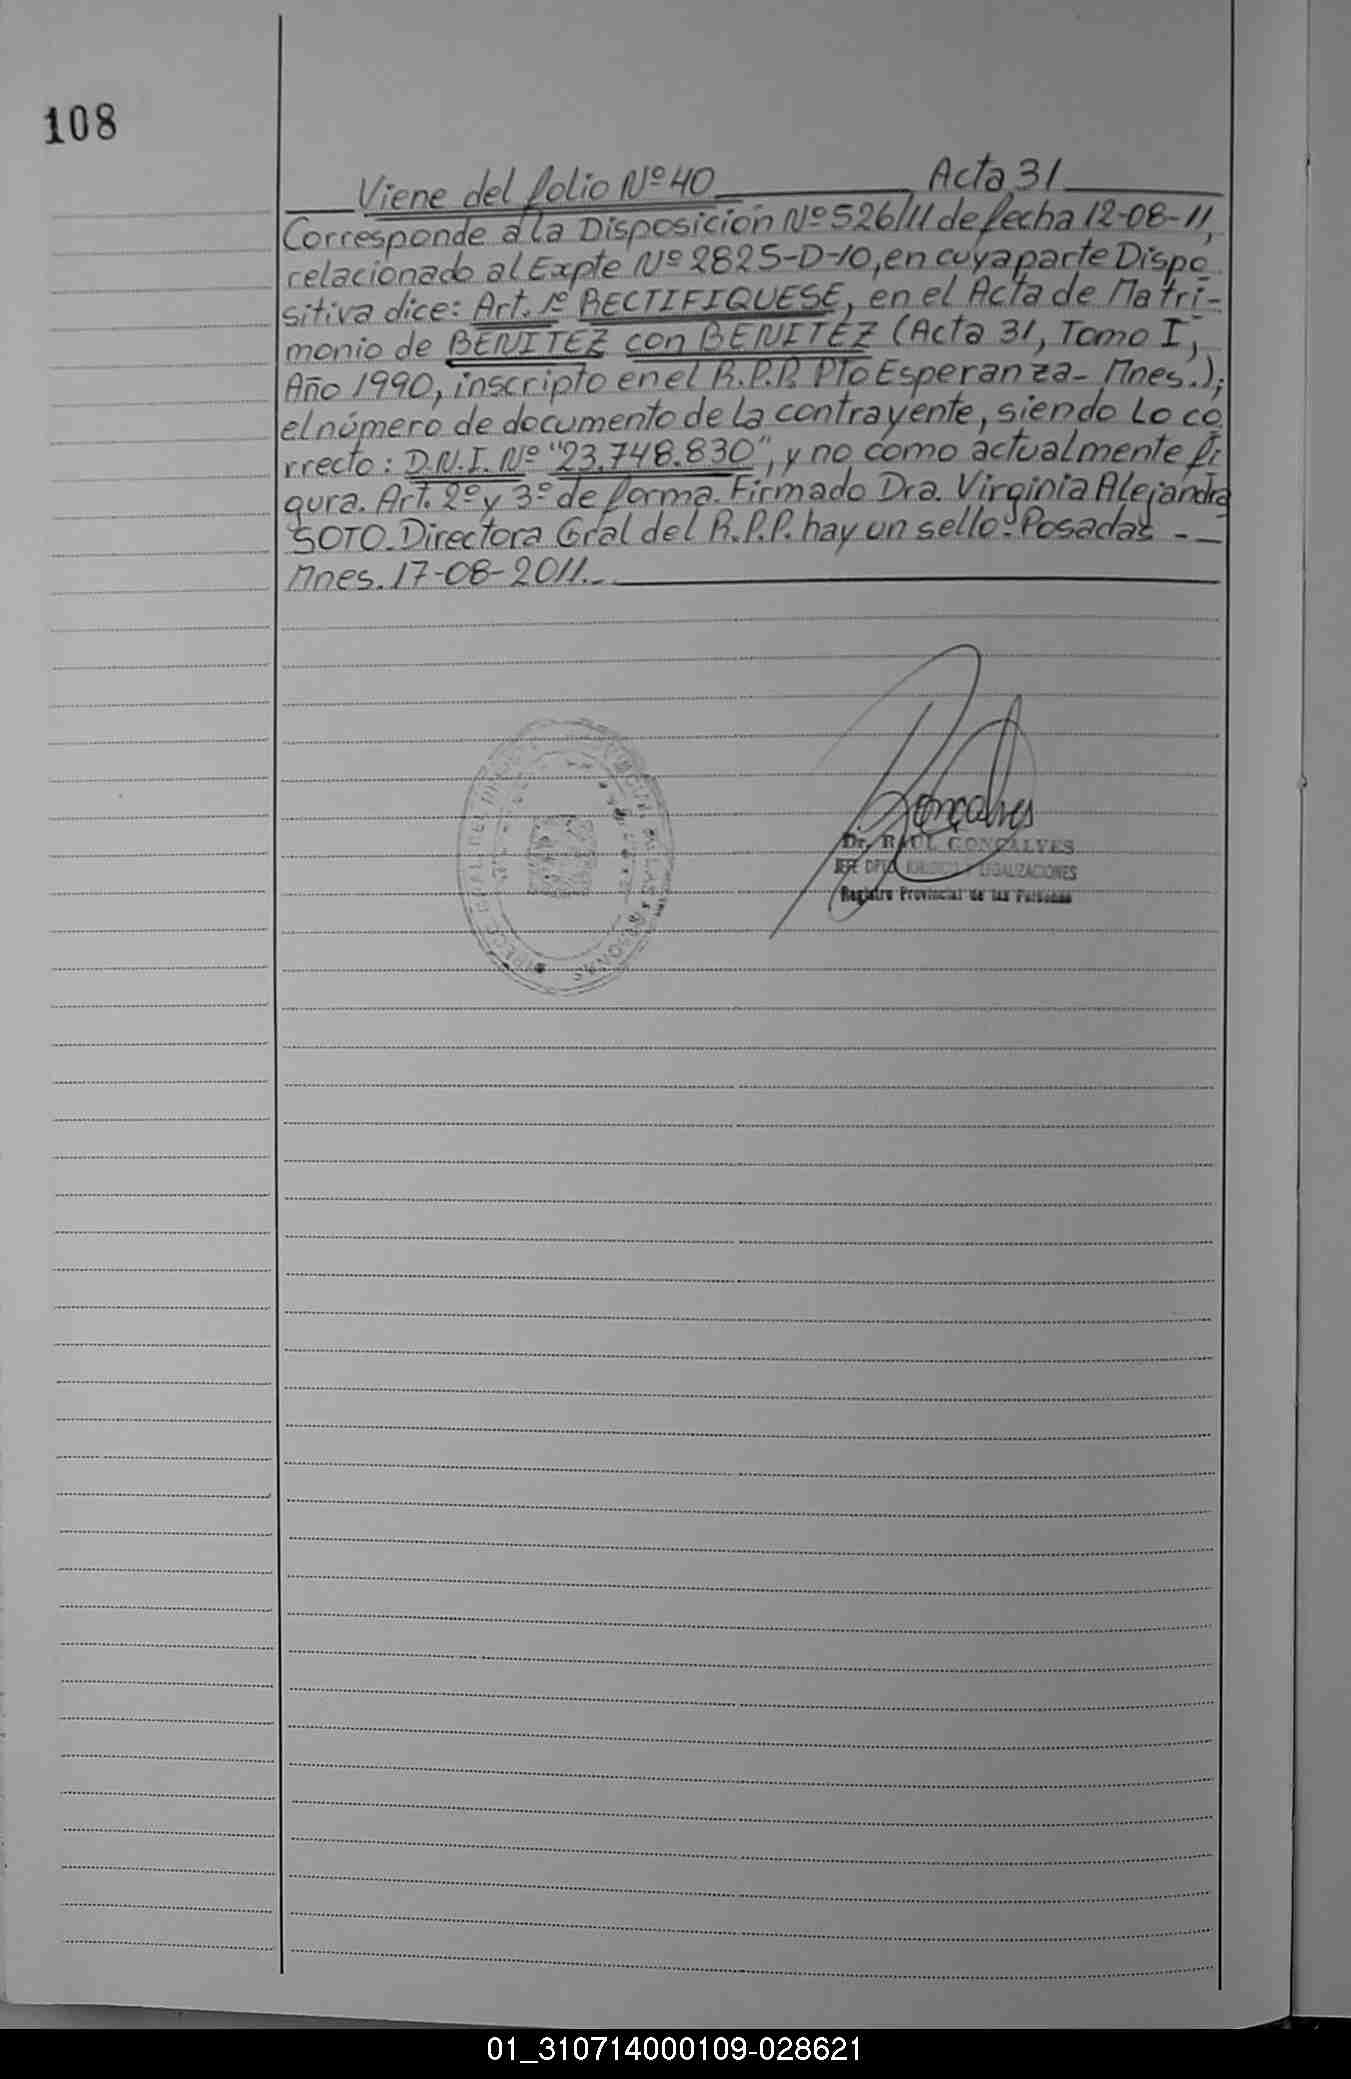 108
Viene del folio Nº 40 Acta 31
Corresponde a la Disposición Nº 526/11 de fecha 12-08-11,
relacionado al Expte Nº 2825-D-10, en cuya parte Dispo
sitiva dice: Art. 1º RECTIFIQUESE, en el Acta de Matri-
monio de BENITEZ con BENITEZ (Acta 31, Tomo I,
Año 1990, inscripto en el R.P.P. Pto Esperanza- Mnes.),
el número de documento de la contrayente, siendo Lo co
rrecto: D.N.I. Nº "23.748.830", y no como actualmente fi
gura. Art. 2º y 3º de forma. Firmado Dra. Virginia Alejandra
SOTO. Directora Gral del R.P.P. hay un sello. Posadas - -
Mnes. 17-08-2011.-
Gonçalves
Dr. RAUL GONÇALVES
JEFE DPTO. JURIDICO Y LEGALIZACIONES
Registro Provincial de las Personas
01_310714000109-028621